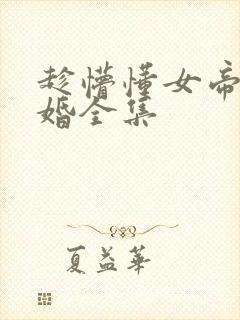 趁懵懂女帝
婚全集
夏益华